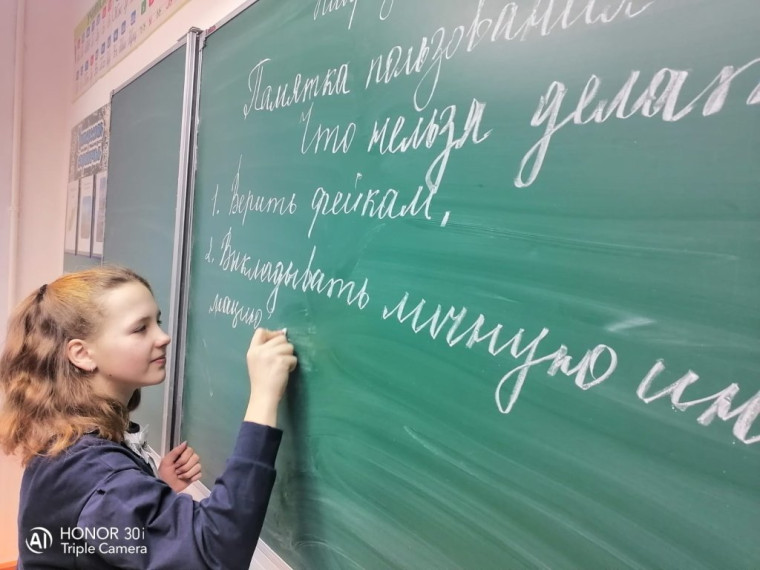 Памятка пользования
Что нельзя делат
1. Верить фейкам,
2. Выкладывать личную ин
мацию
HONOR 30i
Triple Camera
AI